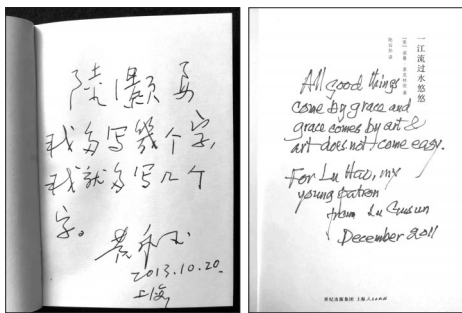 陆灏要
我多写幾个字,
我就多写几个
字。
2013.10.20.
上海
一江流过水悠悠
陆谷孙 译
All good things
come by grace and
grace comes by art &
art does not come easy.
For Lu Hao, my
young patron
from Lu Gusun
December 2011
世纪出版集团 上海人民出版社